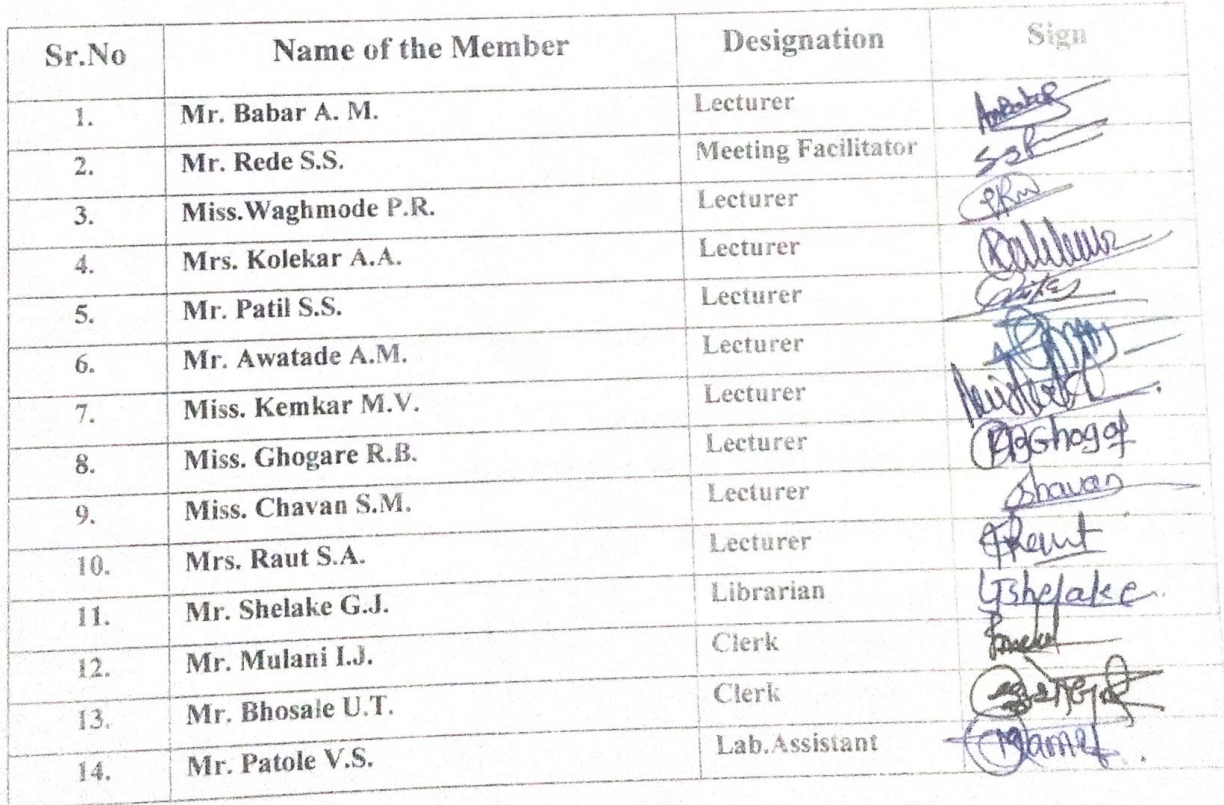 Sr.No Name of the Member Designation Sign
1. Mr. Babar A. M. Lecturer
2. Mr. Rede S.S. Meeting Facilitator
3. Miss.Waghmode P.R. Lecturer
4. Mrs. Kolekar A.A. Lecturer
5. Mr. Patil S.S. Lecturer
6. Mr. Awatade A.M. Lecturer
7. Miss. Kemkar M.V. Lecturer
8. Miss. Ghogare R.B. Lecturer
9. Miss. Chavan S.M. Lecturer
10. Mrs. Raut S.A. Lecturer
11. Mr. Shelake G.J. Librarian Gshelake
12. Mr. Mulani I.J. Clerk
13. Mr. Bhosale U.T. Clerk
14. Mr. Patole V.S. Lab.Assistant